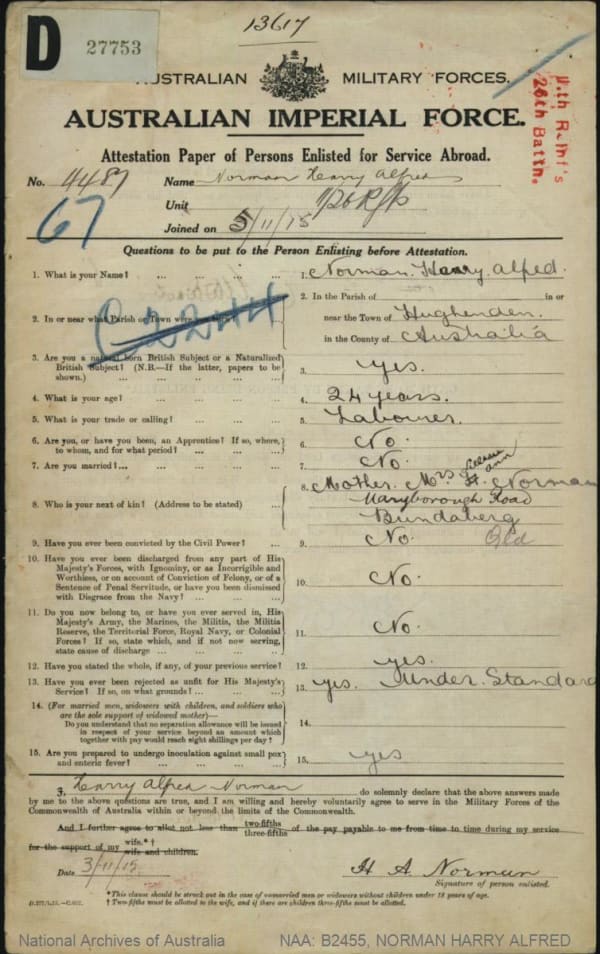 13617
D 27753
AUSTRALIAN MILITARY FORCES.
AUSTRALIAN IMPERIAL FORCE.
11th Reinf's
26th Battn.
Attestation Paper of Persons Enlisted for Service Abroad.
No. 4487 Name Norman Harry Alfred
Unit
Joined on 5/11/15
67
Questions to be put to the Person Enlisting before Attestation.
1. What is your Name? ... ... ... ... 1. Norman. Harry. Alfred.
2. In or near what Parish or Town were you born? 2. In the Parish of in or
near the Town of Hughenden.
in the County of Australia
3. Are you a natural born British Subject or a Naturalized
British Subject? (N.B.—If the latter, papers to be
shown.) ... ... ... ... ... 3. yes.
4. What is your age? ... ... ... ... 4. 24 years.
5. What is your trade or calling? ... ... ... 5. Labourer.
6. Are you, or have you been, an Apprentice? If so, where,
to whom, and for what period? ... ... ... 6. No.
7. Are you married?... ... ... ... ... 7. No.
8. Who is your next of kin? (Address to be stated) ... 8. Mother. Mrs H. Norman
ann
Maryborough Road
Bundaberg
Qld
9. Have you ever been convicted by the Civil Power? ... 9. No.
10. Have you ever been discharged from any part of His
Majesty's Forces, with Ignominy, or as Incorrigible and
Worthless, or on account of Conviction of Felony, or of a
Sentence of Penal Servitude, or have you been dismissed
with Disgrace from the Navy? ... ... ... 10. No.
11. Do you now belong to, or have you ever served in, His
Majesty's Army, the Marines, the Militia, the Militia
Reserve, the Territorial Force, Royal Navy, or Colonial
Forces? If so, state which, and if not now serving,
state cause of discharge ... ... ... ... 11. No.
12. Have you stated the whole, if any, of your previous service? 12. yes.
13. Have you ever been rejected as unfit for His Majesty's
Service? If so, on what grounds? ... ... ... 13. yes. Under. Standard
14. (For married men, widowers with children, and soldiers who
are the sole support of widowed mother)—
Do you understand that no separation allowance will be issued
in respect of your service beyond an amount which
together with pay would reach eight shillings per day? 14.
15. Are you prepared to undergo inoculation against small pox
and enteric fever? ... ... ... ... 15. yes
I, Harry Alfred Norman do solemnly declare that the above answers made
by me to the above questions are true, and I am willing and hereby voluntarily agree to serve in the Military Forces of the
Commonwealth of Australia within or beyond the limits of the Commonwealth.
And I further agree to allot not less than two-fifths three-fifths of the pay payable to me from time to time during my service
for the support of my wife.* † wife and children.
Date 3/11/15 H A Norman
Signature of person enlisted.
*This clause should be struck out in the case of unmarried men or widowers without children under 18 years of age.
† Two-fifths must be allotted to the wife, and if there are children three-fifths must be allotted.
National Archives of Australia NAA: B2455, NORMAN HARRY ALFRED